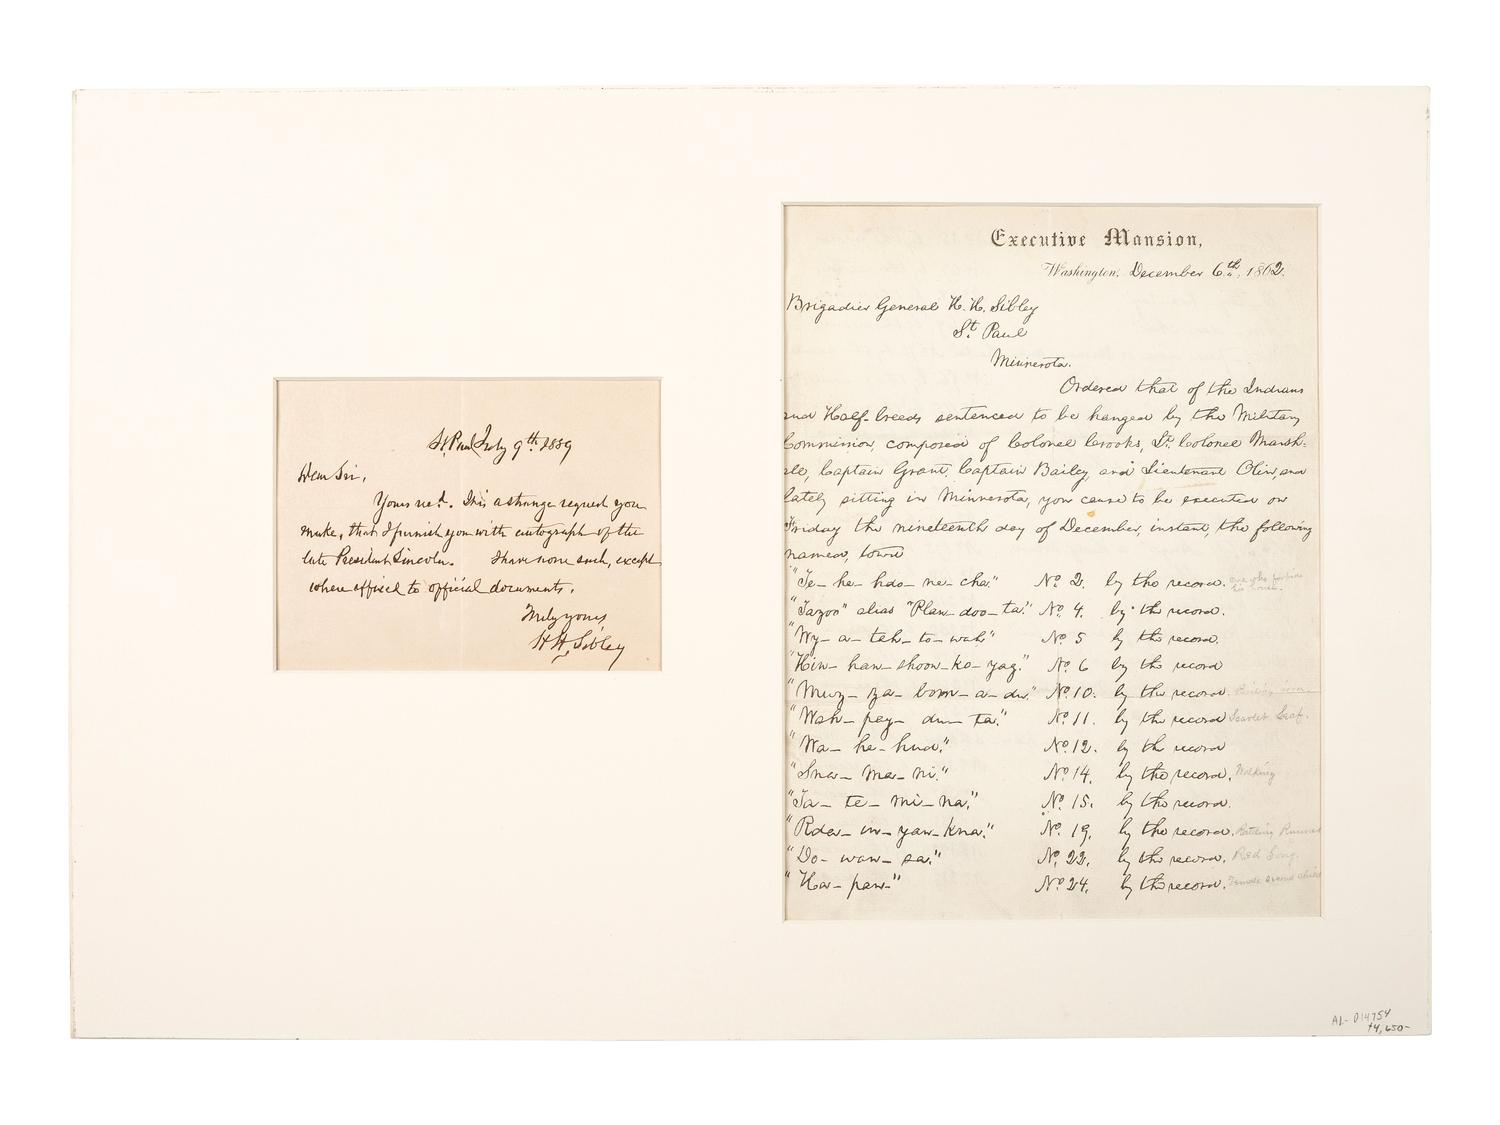 St. Paul July 9th 1889
Dear Sir,
Yours rec.d. It is a strange request you
make, that I furnish you with autograph of the
late President Lincoln. I have none such, except
where affixed to official documents.
Truly yours,
H H, Sibley
Executive Mansion,
Washington, December 6th, 1862.
Brigadier General H. H. Sibley
St. Paul
Minnesota.
Ordered that of the Indians
and Half-breeds sentenced to be hanged by the Military
Commission, composed of Colonel Crooks, Lt. Colonel Marsh-
ale, Captain Grant, Captain Bailey, and Lieutenant Olin, and
lately sitting in Minnesota, you cause to be executed on
Friday the nineteenth day of December, instant, the following
named, towit
"Te- he- hdo- ne- cha." No. 2. by the record. one who forbids his house.
"Tazoo" alias "Plan- doo- ta." No. 4. by the record.
"Wy- a- teh- to- wah" No. 5 by the record.
"Hin- han- shoon- ko- yag." No. 6 by the record
"Muz- za- bom- a- du." No. 10. by the record.
"Wah- pay- du- ta." No. 11. by the record Scarlet Leaf.
"Wa- he- hud." No. 12. by the record
"Sna- ma- ni." No. 14. by the record. Walking
"Ta- te- mi- na." No. 15. by the record.
"Rda- in- yan- kna." No. 19. by the record. Rattling Runner
"Do- wan- sa." No. 22. by the record. Red Song.
"Ha- pan-" No. 24. by the record. Female second child
A2- D14754
$4,650-